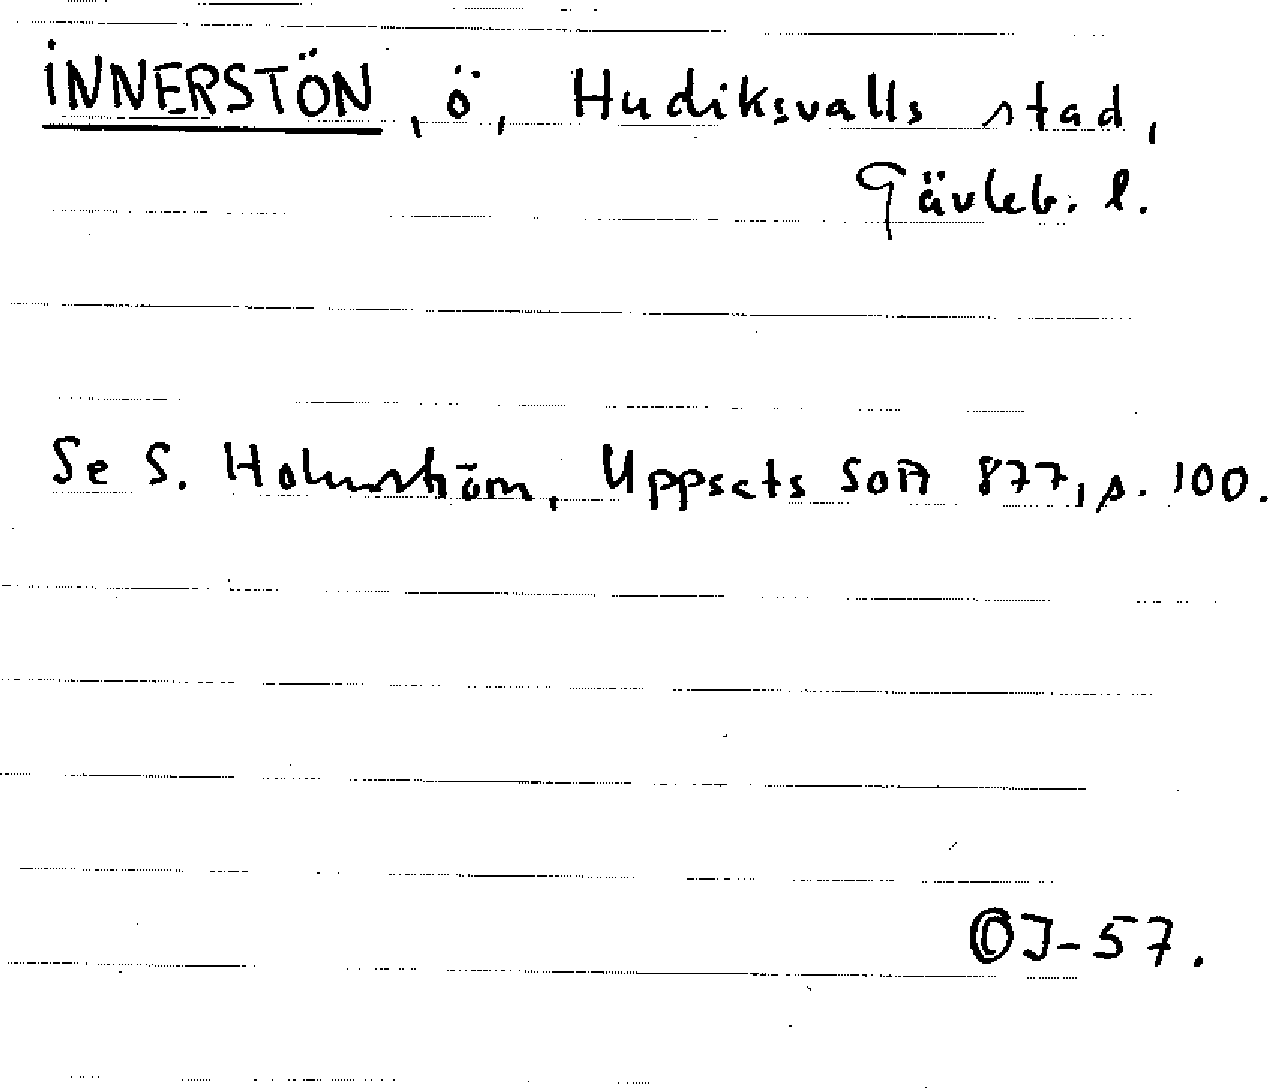 INNERSTÖN, ö, Hudiksvalls stad,
Gävleb. l.
Se S. Holmström, Uppsats SOA 877, s. 100.
OJ-57.